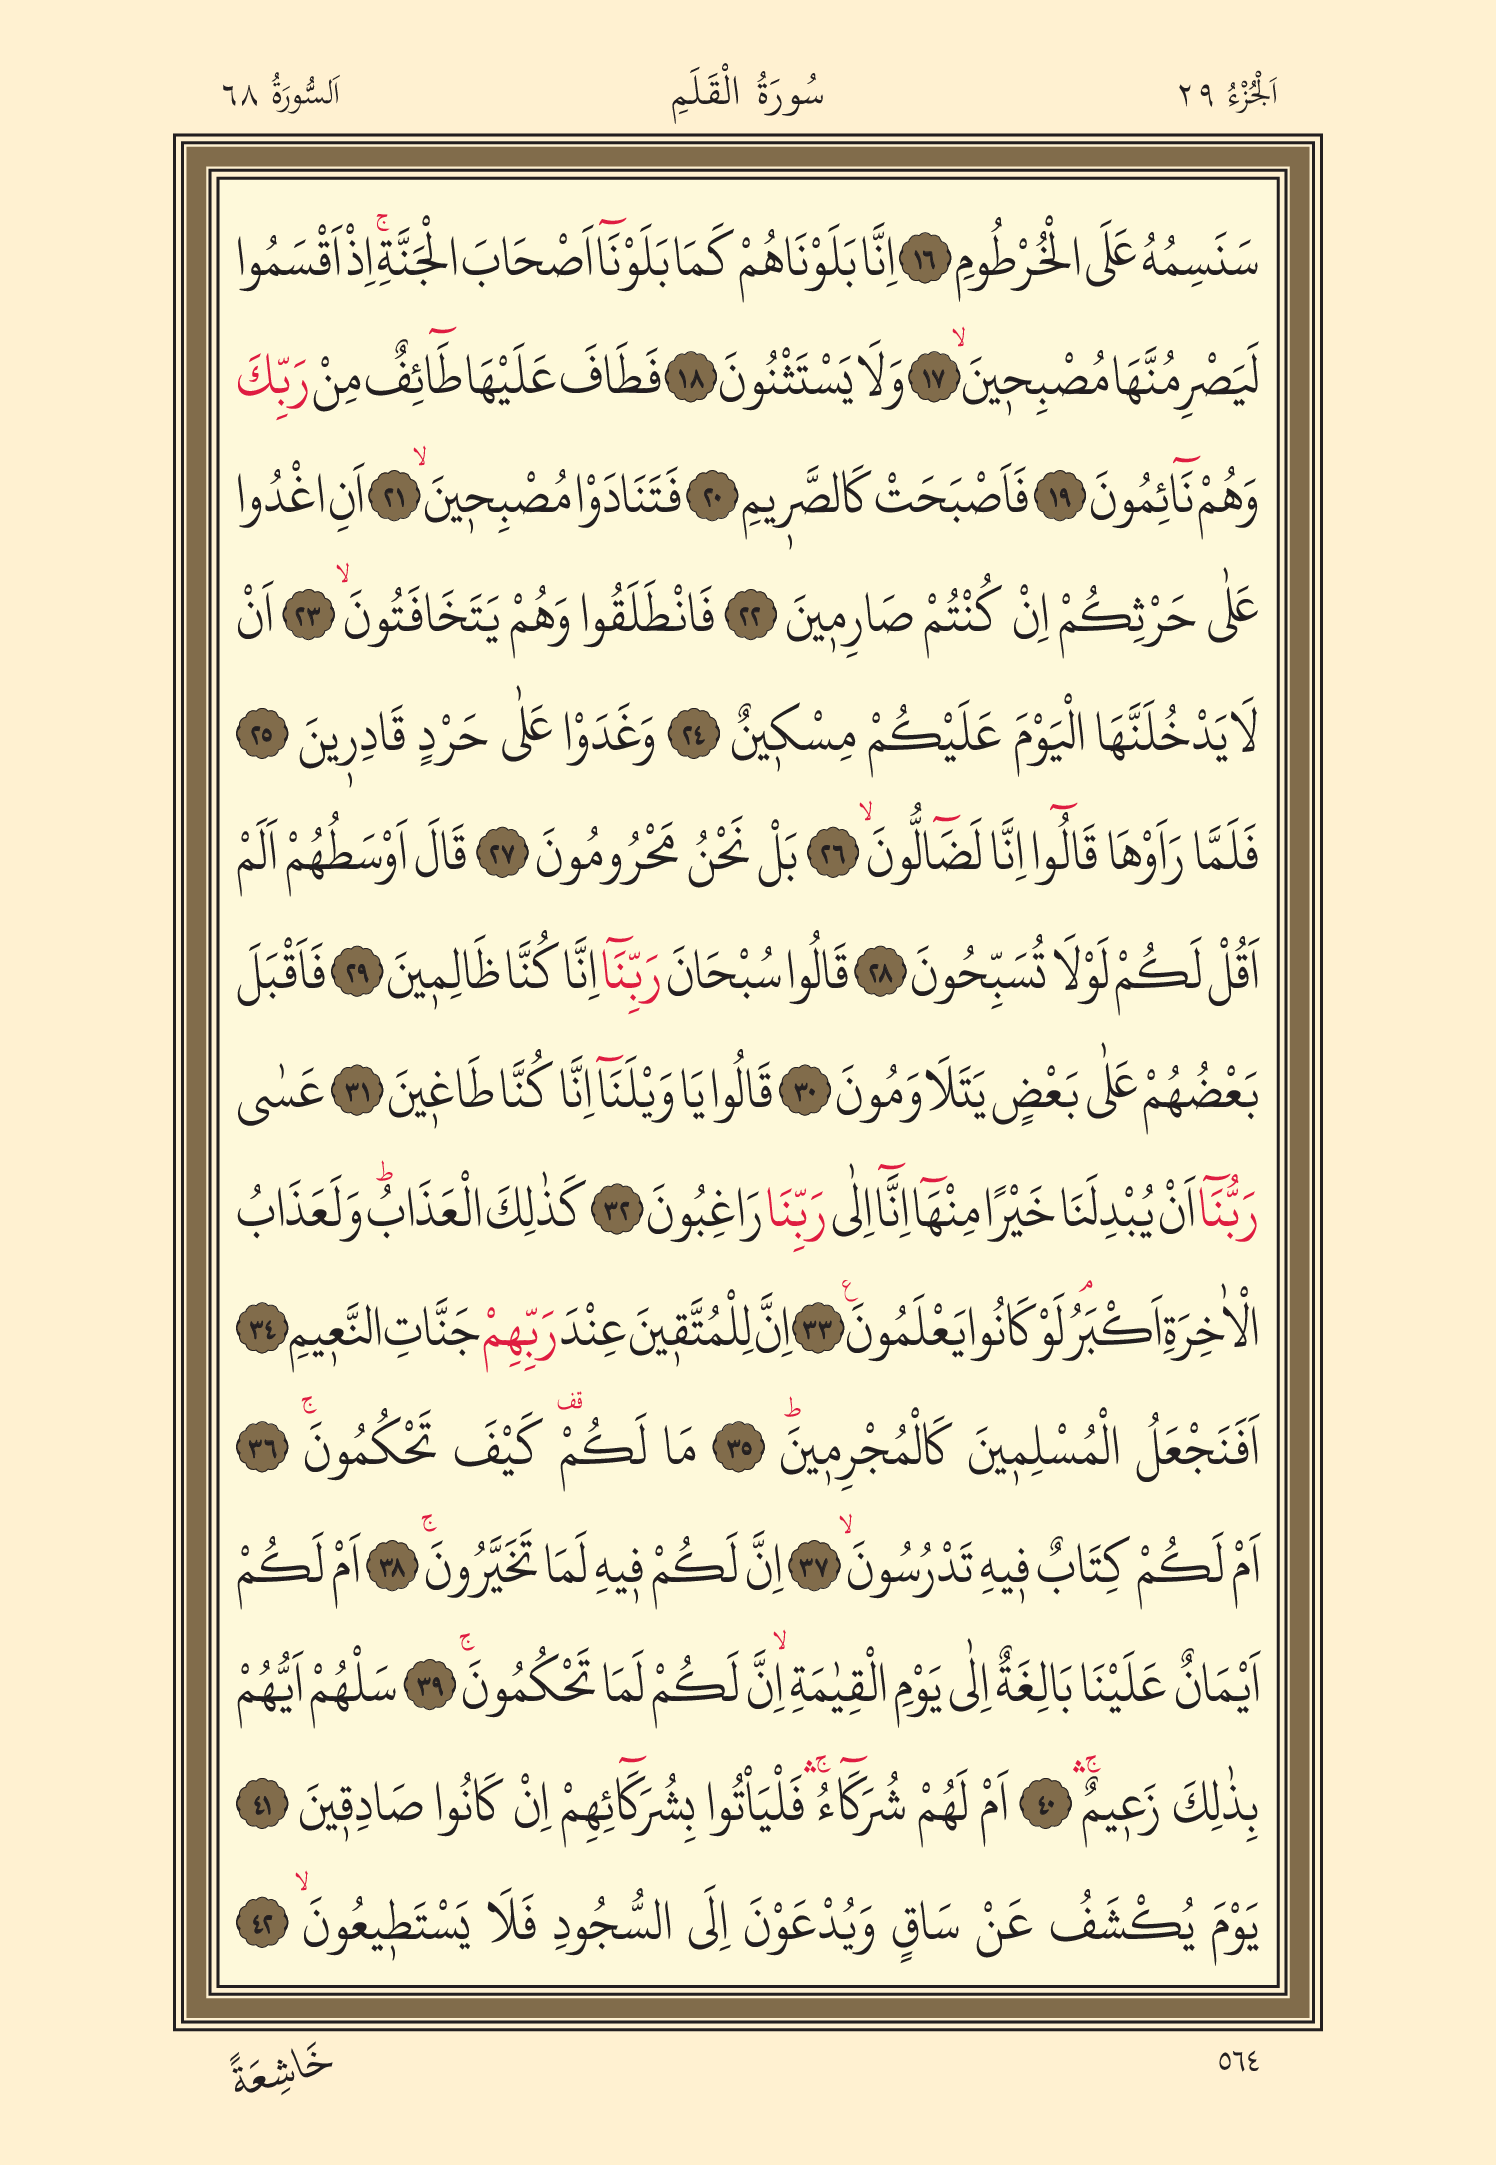 اَلْجُزْءُ ٢٩
سُورَةُ الْقَلَمِ
اَلسُّورَةُ ٦٨
سَنَسِمُهُ عَلَى الْخُرْطُومِ ١٦ اِنَّا بَلَوْنَاهُمْ كَمَا بَلَوْنَٓا اَصْحَابَ الْجَنَّةِۚ اِذْ اَقْسَمُوا
لَيَصْرِمُنَّهَا مُصْبِح۪ينَۙ ١٧ وَلَا يَسْتَثْنُونَ ١٨ فَطَافَ عَلَيْهَا طَٓائِفٌ مِنْ رَبِّكَ
وَهُمْ نَٓائِمُونَ ١٩ فَاَصْبَحَتْ كَالصَّر۪يمِ ٢٠ فَتَنَادَوْا مُصْبِح۪ينَۙ ٢١ اَنِ اغْدُوا
عَلٰى حَرْثِكُمْ اِنْ كُنْتُمْ صَارِم۪ينَ ٢٢ فَانْطَلَقُوا وَهُمْ يَتَخَافَتُونَۙ ٢٣ اَنْ
لَا يَدْخُلَنَّهَا الْيَوْمَ عَلَيْكُمْ مِسْك۪ينٌ ٢٤ وَغَدَوْا عَلٰى حَرْدٍ قَادِر۪ينَ ٢٥
فَلَمَّا رَاَوْهَا قَالُٓوا اِنَّا لَضَٓالُّونَۙ ٢٦ بَلْ نَحْنُ مَحْرُومُونَ ٢٧ قَالَ اَوْسَطُهُمْ اَلَمْ
اَقُلْ لَكُمْ لَوْلَا تُسَبِّحُونَ ٢٨ قَالُوا سُبْحَانَ رَبِّنَٓا اِنَّا كُنَّا ظَالِم۪ينَ ٢٩ فَاَقْبَلَ
بَعْضُهُمْ عَلٰى بَعْضٍ يَتَلَاوَمُونَ ٣٠ قَالُوا يَا وَيْلَنَٓا اِنَّا كُنَّا طَاغ۪ينَ ٣١ عَسٰى
رَبُّنَٓا اَنْ يُبْدِلَنَا خَيْرًا مِنْهَٓا اِنَّٓا اِلٰى رَبِّنَا رَاغِبُونَ ٣٢ كَذٰلِكَ الْعَذَابُۜ وَلَعَذَابُ
الْاٰخِرَةِ اَكْبَرُۢ لَوْ كَانُوا يَعْلَمُونَ۟ ٣٣ اِنَّ لِلْمُتَّق۪ينَ عِنْدَ رَبِّهِمْ جَنَّاتِ النَّع۪يمِ ٣٤
اَفَنَجْعَلُ الْمُسْلِم۪ينَ كَالْمُجْرِم۪ينَۜ ٣٥ مَا لَكُمْ۠ كَيْفَ تَحْكُمُونَۚ ٣٦
اَمْ لَكُمْ كِتَابٌ ف۪يهِ تَدْرُسُونَۙ ٣٧ اِنَّ لَكُمْ ف۪يهِ لَمَا تَخَيَّرُونَۚ ٣٨ اَمْ لَكُمْ
اَيْمَانٌ عَلَيْنَا بَالِغَةٌ اِلٰى يَوْمِ الْقِيٰمَةِۙ اِنَّ لَكُمْ لَمَا تَحْكُمُونَۚ ٣٩ سَلْهُمْ اَيُّهُمْ
بِذٰلِكَ زَع۪يمٌۚۛ ٤٠ اَمْ لَهُمْ شُرَكَٓاءُۚۛ فَلْيَأْتُوا بِشُرَكَٓائِهِمْ اِنْ كَانُوا صَادِق۪ينَ ٤١
يَوْمَ يُكْشَفُ عَنْ سَاقٍ وَيُدْعَوْنَ اِلَى السُّجُودِ فَلَا يَسْتَط۪يعُونَۙ ٤٢
٥٦٤
خَاشِعَةً